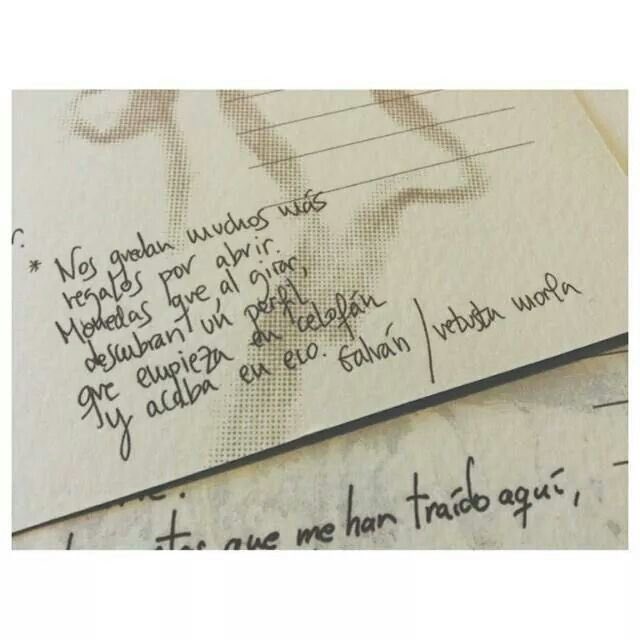 * Nos quedan muchos más
regalos por abrir.
Monedas que, al girar,
descubran un perfil
que empieza en celofán
y acaba en eco. Galván / vetusta morla
que me han traído aquí,